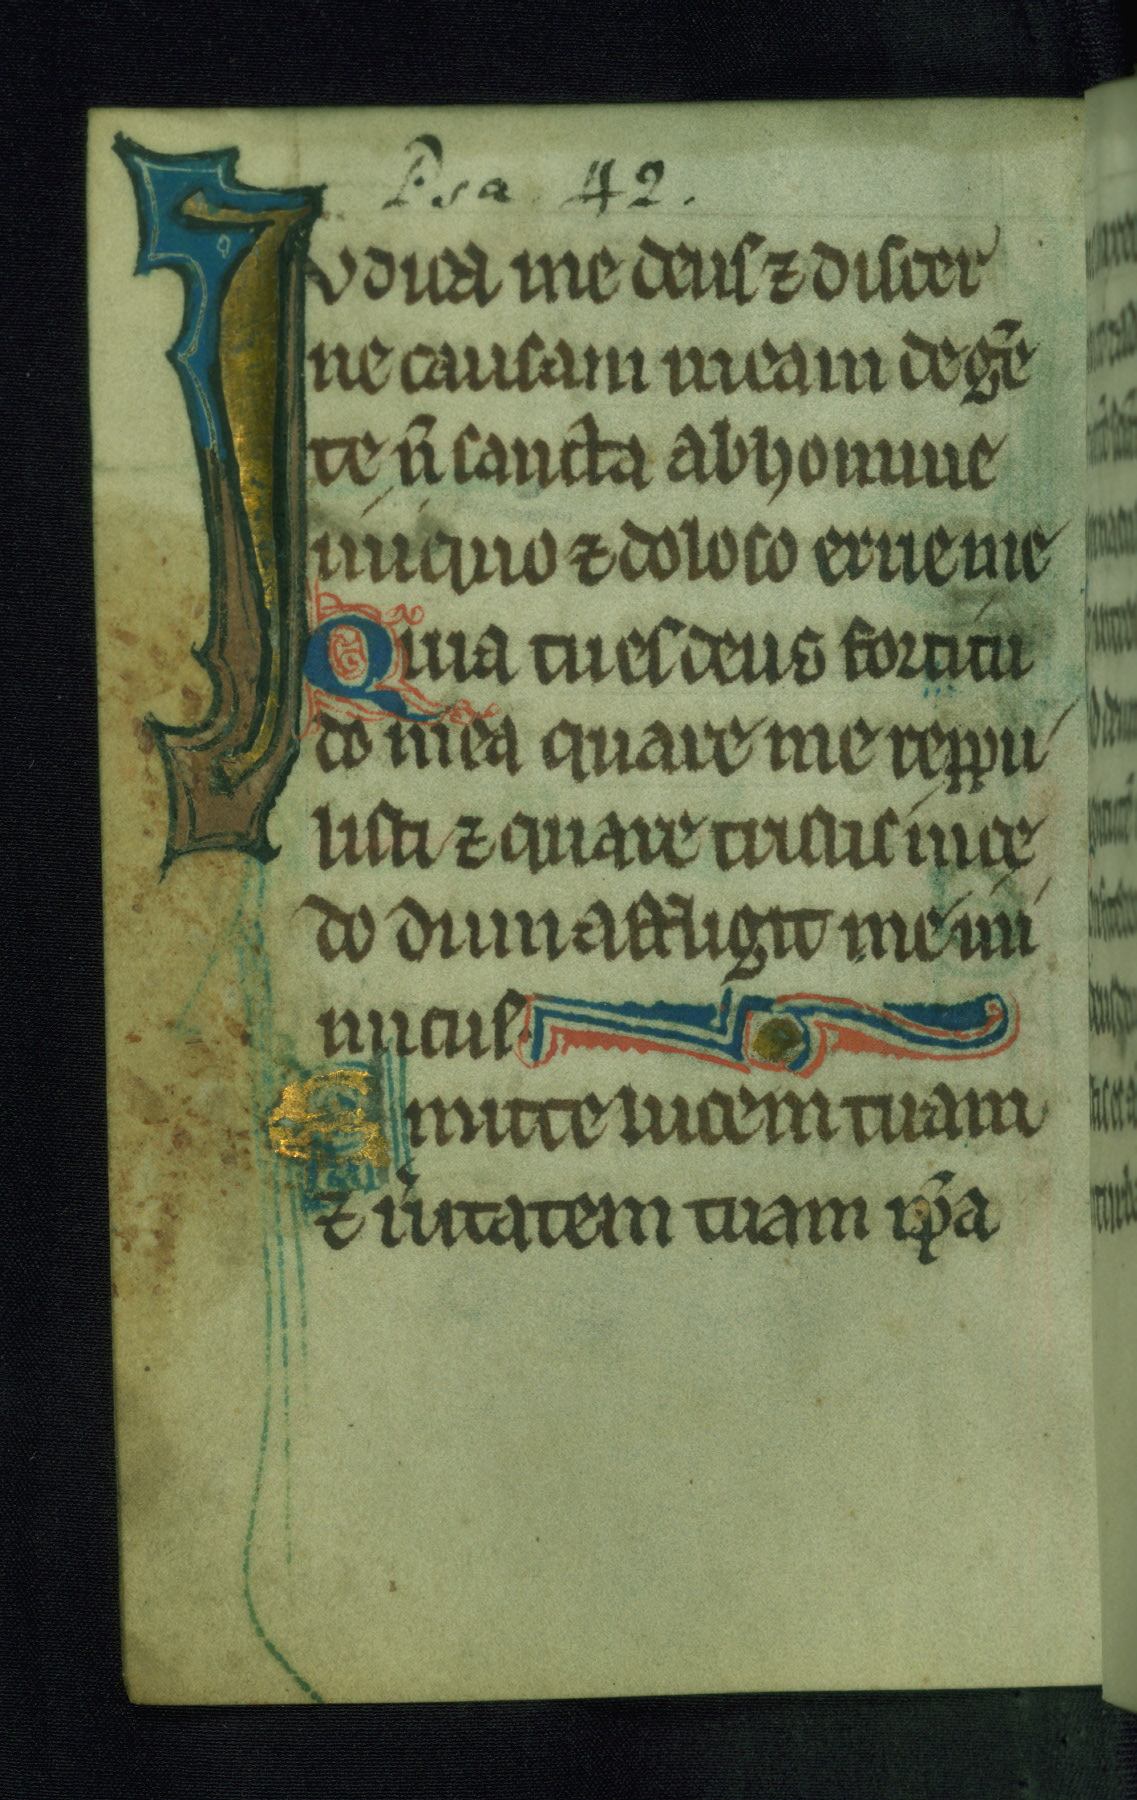 Psa 42.
Iudica me deus ⁊ discer
ne causam meam de gē
te n̄ sancta ab homine
iniquo ⁊ doloso erue me
Quia tu es deus fortitu
do mea quare me reppu
listi ⁊ quare tristis ince
do dum affligit me ini
micus
Emitte lucem tuam
⁊ u̓itatem tuam ip̄a